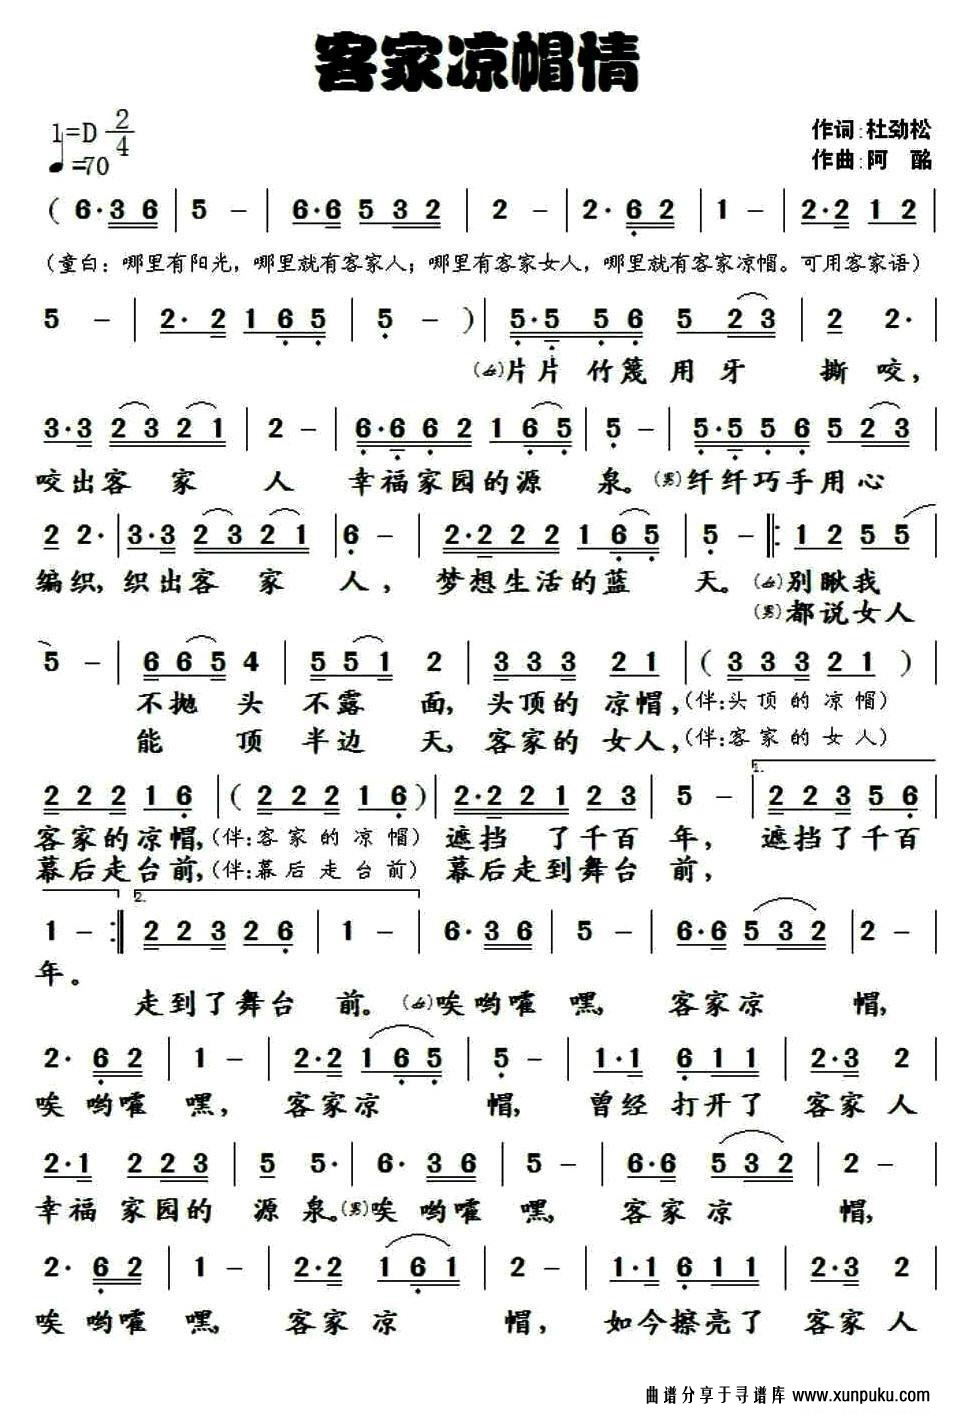 客家凉帽情
1=D 2/4
♩=70
作词:杜劲松
作曲:阿 酩
( 6·3 6 | 5 - | 6·6 5 3 2 | 2 - | 2· 6 2 | 1 - | 2·2 1 2 |
(童白：哪里有阳光，哪里就有客家人；哪里有客家女人，哪里就有客家凉帽。可用客家语)
5 - | 2·2 1 6 5 | 5 - ) | 5·5 5 6 5 2 3 | 2 2· |
(女)片片竹篾用牙 撕咬，
3·3 2 3 2 1 | 2 - | 6·6 6 2 1 6 5 | 5 - | 5·5 5 6 5 2 3 |
咬出客 家 人 幸福家园的源 泉。(男)纤纤巧手用心
2 2· | 3·3 2 3 2 1 | 6 - | 2·2 2 2 1 6 5 | 5 - |: 1 2 5 5 |
编织，织出客 家 人， 梦想生活的蓝 天。(女)别瞅我
(男)都说女人
5 - | 6 6 5 4 | 5 5 1 2 | 3 3 3 2 1 | ( 3 3 3 2 1 ) |
不抛 头 不露 面，头顶的 凉帽，(伴:头 顶 的 凉 帽)
能 顶 半边 天，客家的 女人，(伴:客 家 的 女 人)
1.
2 2 2 1 6 | ( 2 2 2 1 6 ) | 2·2 2 1 2 3 | 5 - | 2 2 3 5 6 |
客家的凉帽，(伴:客 家 的 凉 帽) 遮挡 了千百 年， 遮挡了千百
幕后走台前，(伴:幕 后 走 台 前) 幕后走到舞台 前，
2.
1 - :| 2 2 3 2 6 | 1 - | 6· 3 6 | 5 - | 6·6 5 3 2 | 2 - |
年。
走到了舞台 前。(女)唉 哟嚯 嘿， 客家凉 帽，
2· 6 2 | 1 - | 2·2 1 6 5 | 5 - | 1·1 6 1 1 | 2·3 2 |
唉 哟嚯 嘿， 客家凉 帽， 曾经 打开了 客家 人
2·1 2 2 3 | 5 5· | 6· 3 6 | 5 - | 6·6 5 3 2 | 2 - |
幸福 家园的 源 泉。(男)唉 哟嚯 嘿， 客家 凉 帽，
2· 6 2 | 1 - | 2·2 1 6 1 | 2 - | 1·1 6 1 1 | 2·3 2 |
唉 哟嚯 嘿， 客家 凉 帽， 如今擦亮了 客家 人
曲谱分享于寻谱库 www.xunpuku.com